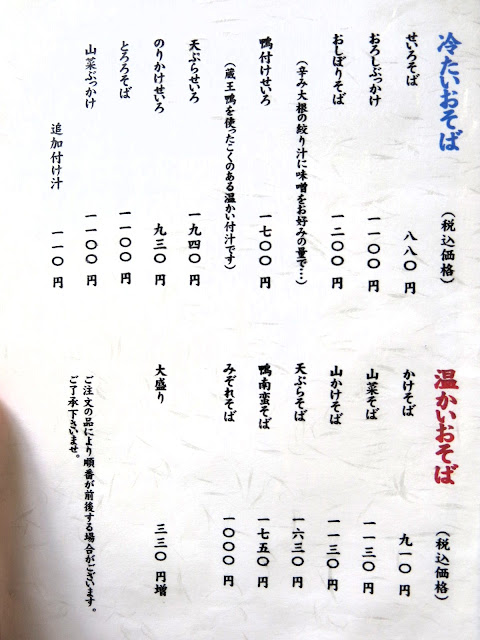 冷たいおそば
(税込価格)
せいろそば 八八〇円
おろしぶっかけ 一一〇〇円
おしぼりそば 一二〇〇円
(辛み大根の絞り汁に味噌をお好みの量で…)
鴨付けせいろ 一七〇〇円
(蔵王鴨を使ったこくのある温かい付汁です)
天ぷらせいろ 一九四〇円
のりかけせいろ 九三〇円
とろろそば 一一〇〇円
山菜ぶっかけ 一一〇〇円
追加付け汁 一一〇円
温かいおそば
(税込価格)
かけそば 九一〇円
山菜そば 一一三〇円
山かけそば 一一三〇円
天ぷらそば 一六三〇円
鴨南蛮そば 一七五〇円
みぞれそば 一〇〇〇円
大盛り 三三〇円増
ご注文の品により順番が前後する場合がございます。
ご了承下さいませ。